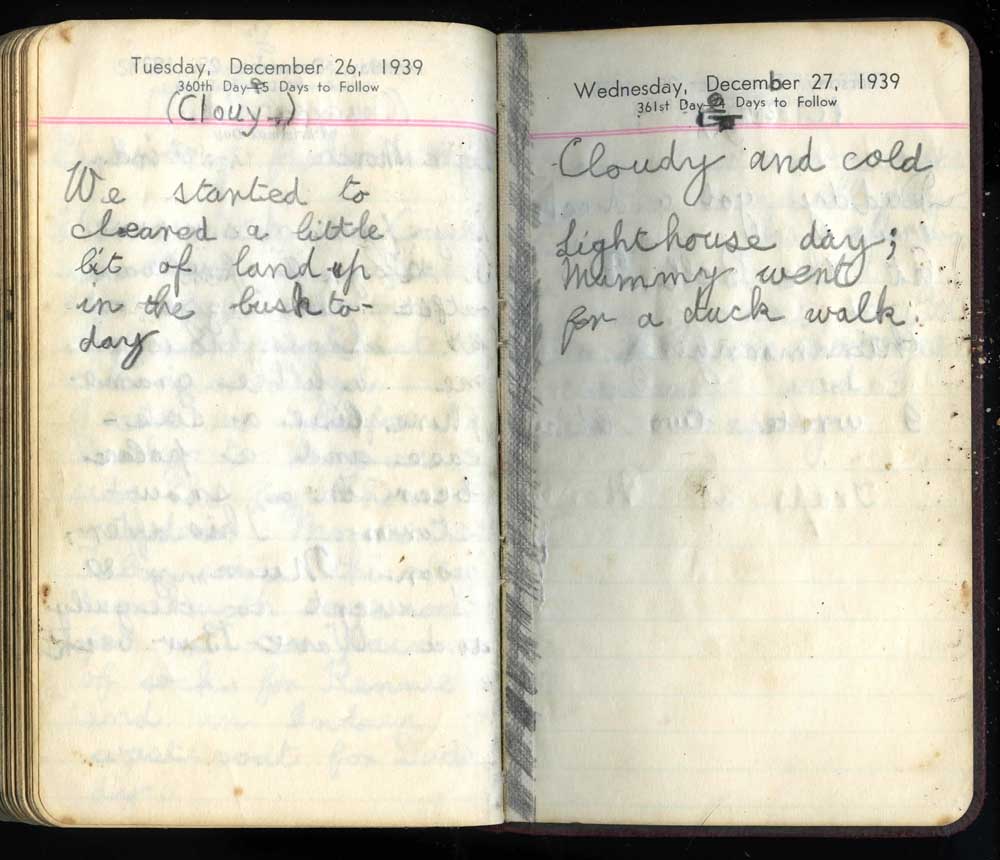 Tuesday, December 26, 1939
360th Day 5 Days to Follow
(Clouy..)
We started to
cleared a little
bit of land up
in the bush to-
day
Wednesday, December 27, 1939
361st Day 4 Days to Follow
Cloudy and cold
Lighthouse day;
Mummy went
for a duck walk.